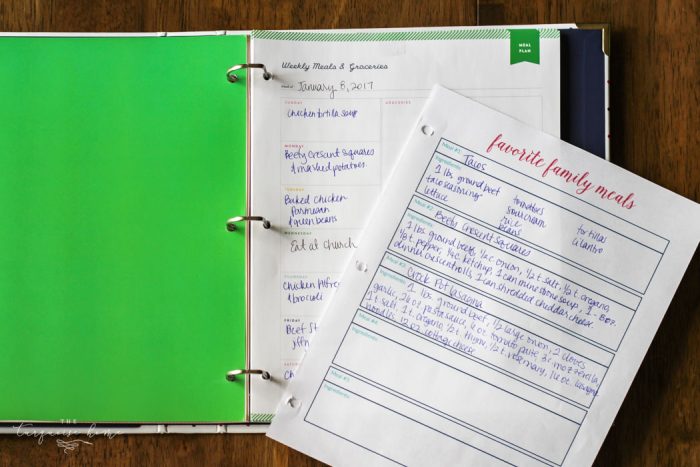 MEAL PLAN
Weekly Meals & Groceries
January 8, 2017
SUNDAY
GROCERIES
Chicken tortilla soup
MONDAY
Beefy Crescent Squares
& mashed potatoes
TUESDAY
Baked chicken
parmesan
& green beans
WEDNESDAY
Eat at church
THURSDAY
Chicken
& broccoli
FRIDAY
Beef
SATURDAY
Chicken
favorite family meals
Meal #1: Tacos
Ingredients:
1 lb ground beef
taco seasoning
lettuce
tomatoes
sour cream
rice
beans
tortillas
cilantro
Meal #2: Beefy Crescent Squares
Ingredients:
1 lb. ground beef, 1/2 c onion, 1/2 t salt, 1/2 t oregano,
pepper, 1/4 c ketchup, 1 can minestrone soup, 1 - 8oz.
dinner crescent rolls, 1 can shredded cheddar cheese.
Meal #3: Crock Pot Lasagna
Ingredients:
1 lb. ground beef, 1/2 large onion, 2 cloves
garlic, 24 oz pasta sauce, 6 oz tomato paste, 3 c mozzarella,
1 t salt, 1 t. oregano, 1/2 t. thyme, 1/2 t. rosemary, 16 oz. lasagna
noodles, 15 oz. cottage cheese
Meal #4:
Ingredients:
Meal #5:
Ingredients:
THE
turquoise home